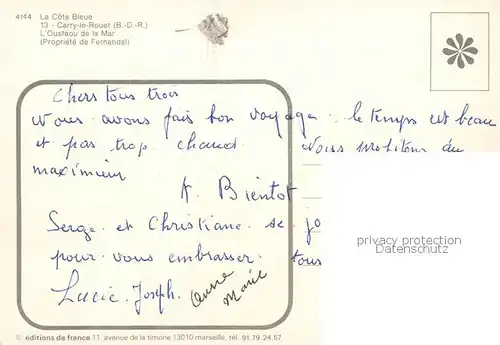 4144 La Côte Bleue
13 - Carry-le-Rouet (B.-D.-R.)
L'Oustaou de la Mar
(Propriété de Fernandel)
Chers tous trois
Nous avons fais bon voyage. le temps est beau
et pas trop chaud. Nous profitons du
maximum
A Bientot
Serge et Christiane se jo
pour vous embrasser tous
Lucie. Joseph. Anne Marie
privacy protection
Datenschutz
© éditions de france 11, avenue de la timone 13010 marseille, tél. 91.79.24.57